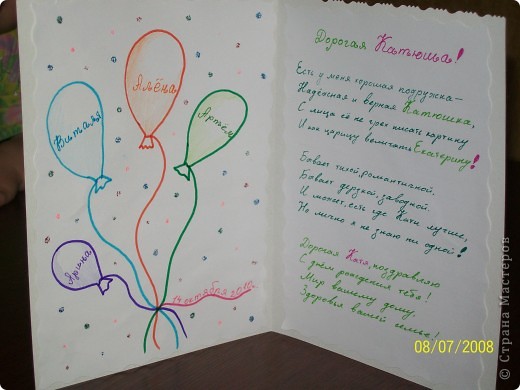 Алёна
Виталя
Артём
Арина
14 октября
Дорогая Катюша!
Есть у меня хорошая подружка—
Надёжная и верная Катюшка,
С лица её не грех писать картину
И как царицу величать Екатерину!
Бывает тихой, романтичной,
Бывает дерзкой, заводной.
И может, есть где Кати лучше,
Но лично я не знаю ни одной!
Дорогая Катя, поздравляю
С днём рождения тебя!
Мир вашему дому,
Здоровья вашей семье!
08/07/2008
© Страна Мастеров